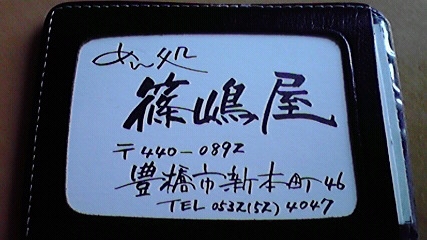 めん処
篠嶋屋
〒440-0892
豊橋市新本町46
TEL 0532(52)4047